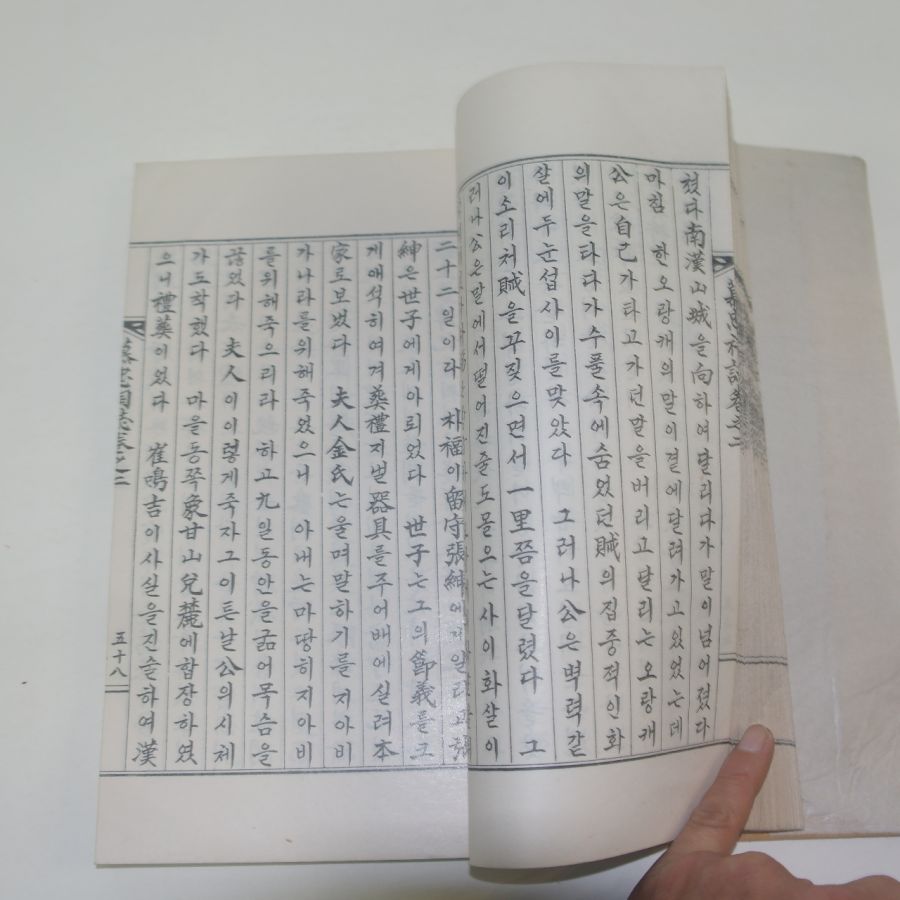 쳤다南漢山城을向하여달리다가말이넘어졌다
마침 한오랑캐의말이곁에달려가고있었는데
公은自己가타고가던말을버리고달리는오랑캐
의말을타다가수풀속에숨었던賊의집중적인화
살에두눈섭사이를맞았다 그러나公은벽력갈
이소리처賊을꾸짖으면서一里쯤을달렸다 그
러나公은말에서떨어진줄도몰으는사이화살이
二十二일이라 朴福이留守張紳에게알리고張
紳은世子에게아뢰었다 世子는그의節義를그
게애석히여겨葬禮지벌器具를주어배에실려本
家로보벘다 夫人金氏는울며말하기를지아비
가나라를위해죽었으니 아내는마땅히지아비
를위해죽으리라 하고九일동안을굶어목숨을
끊었다 夫人이이렇게죽자그이튼날公의시체
가도착했다 마을동쪽象甘山兌麓에합장하였
으니禮葬이었다 崔鳴吉이사실을진술하여漢
五十八